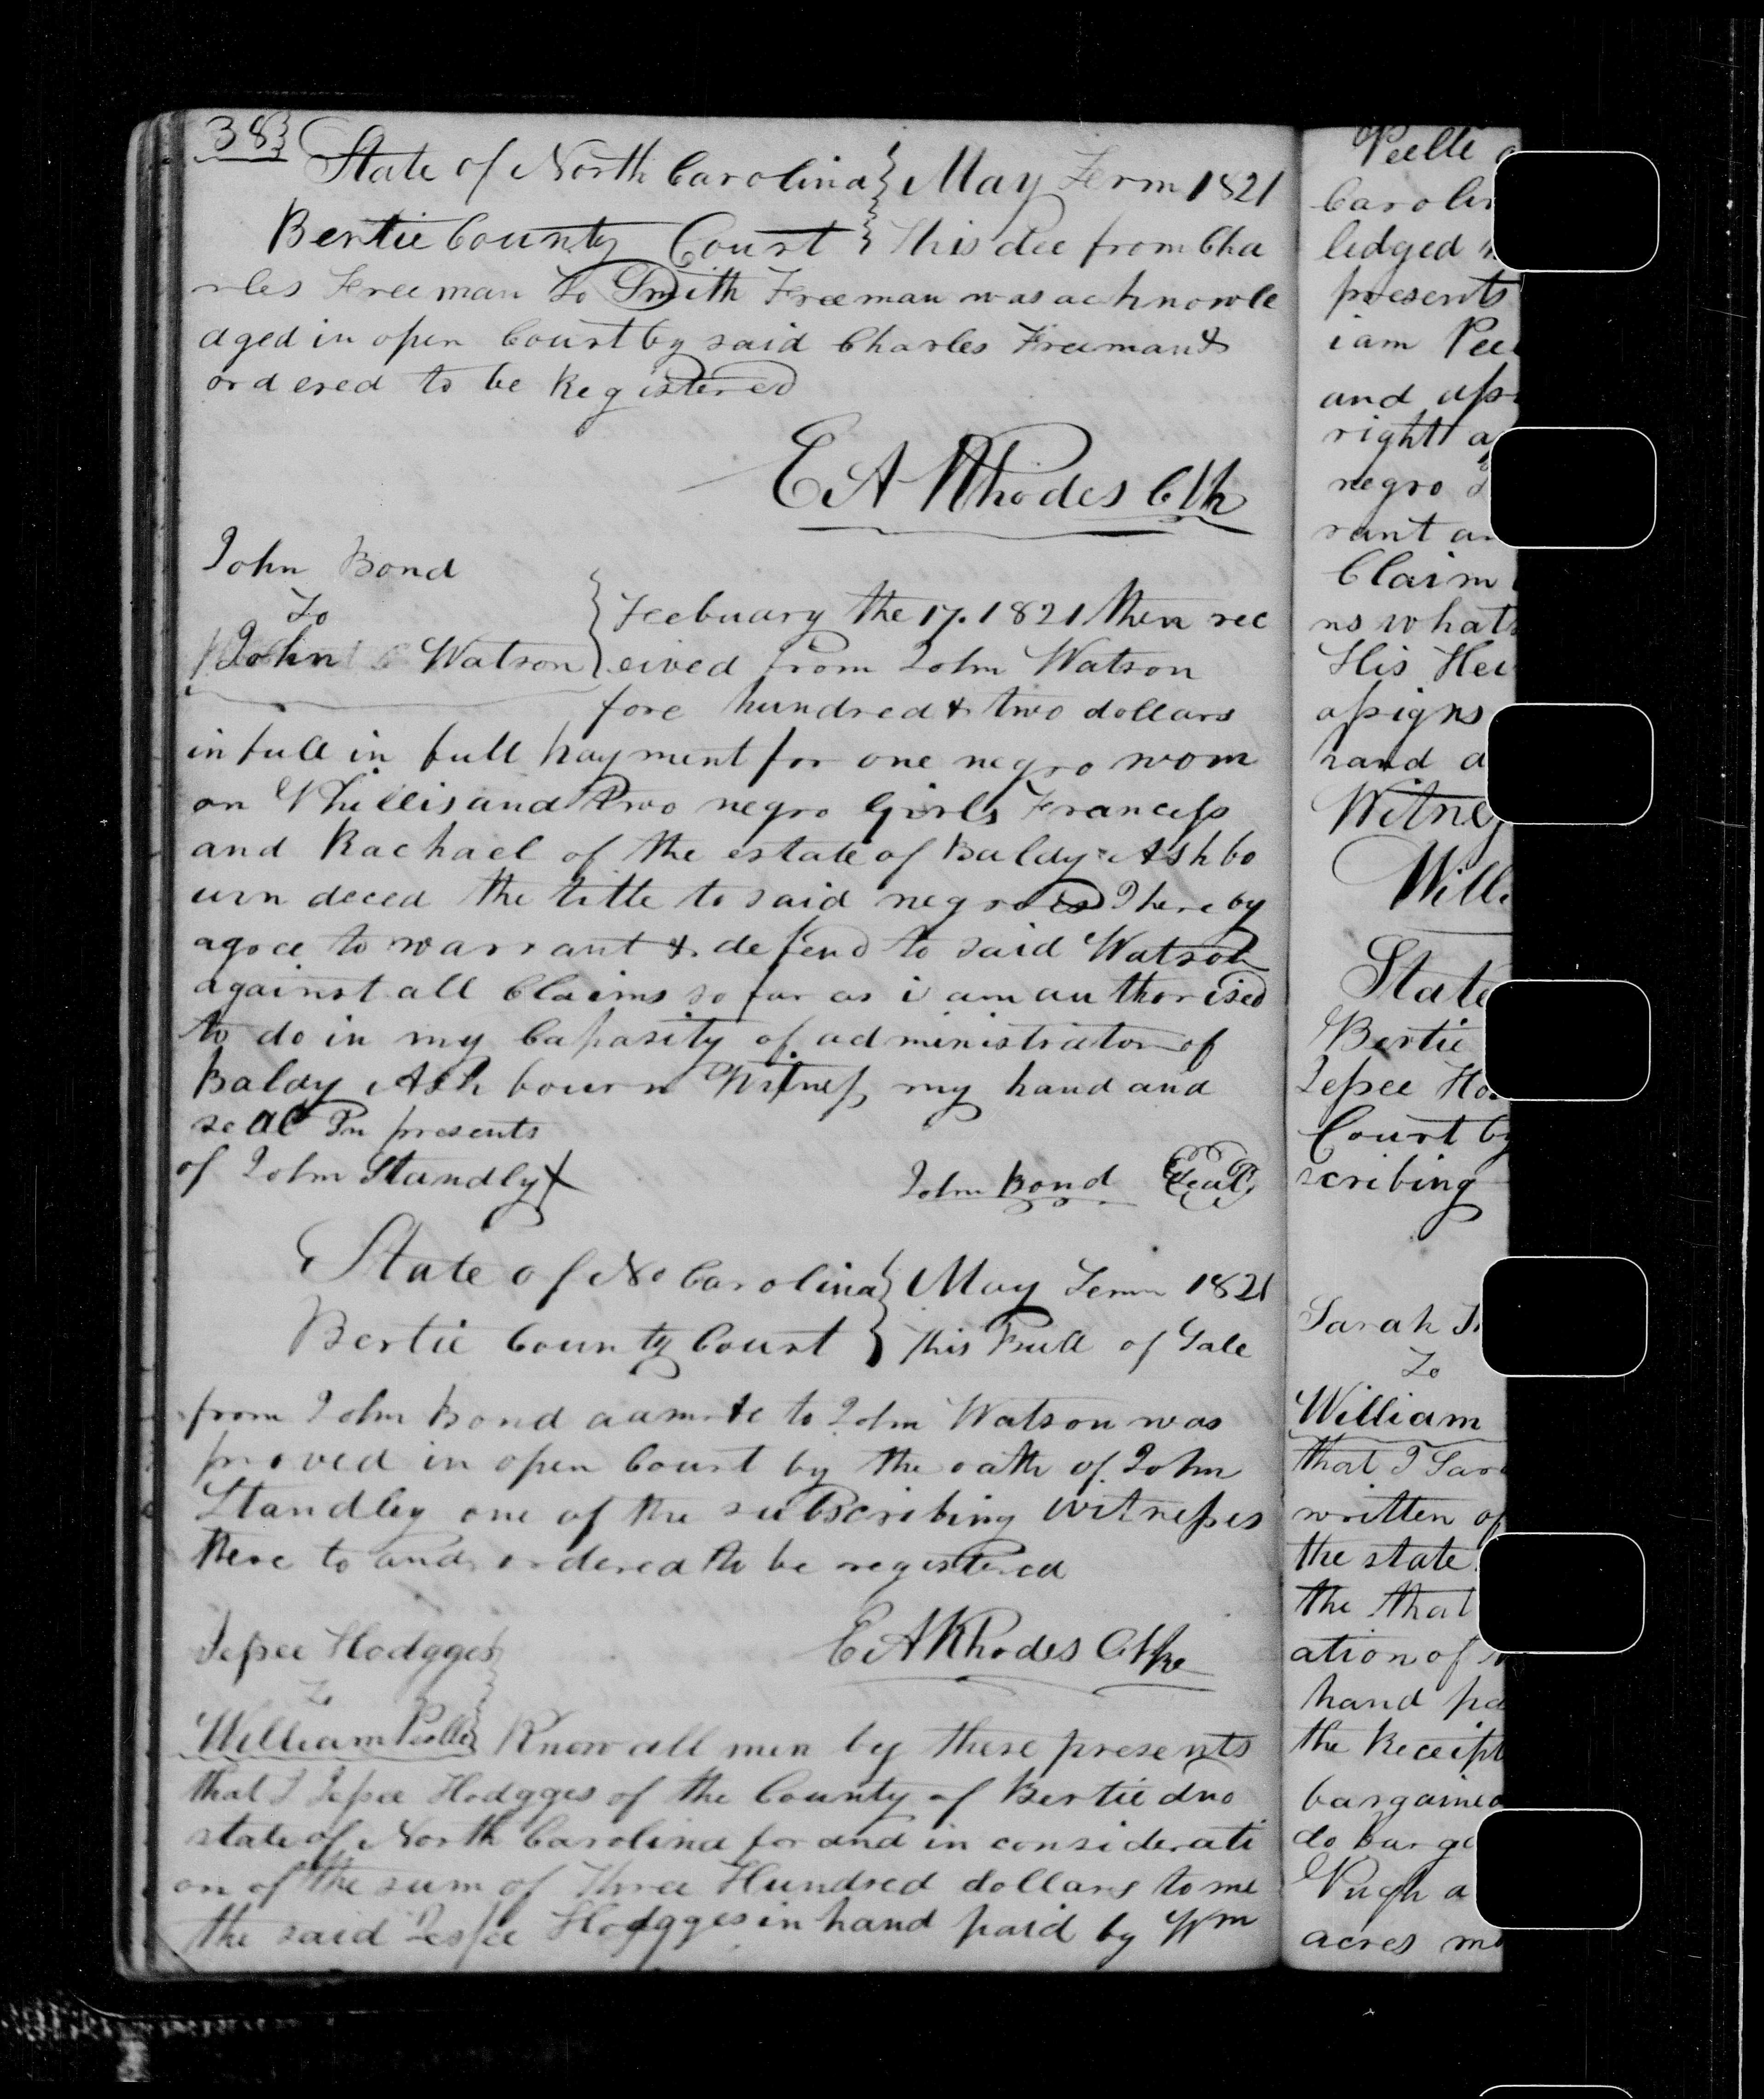 38
State of North Carolina } May Term 1821
Bertie County Court } This dee from Cha
rles Freeman To Smith Freeman was acknowle
dged in open Court by said Charles Freeman &
ordered to be Registered
E A Rhodes Clk
John Bond
To
John Watson
Feebuary the 17. 1821 then rec
eived from John Watson
fore hundred & two dollars
in full in full payment for one negro wom
an Phillis and two negro Girls Francess
and Rachael of the estate of Baldy Ashbo
urn deced the title to said negroes I hereby
agoce to warrant & defend to said Watson
against all Claims so far as i am authorised
to do in my Capasity of administrator of
Baldy Ash bourn Witness my hand and
seal In presents
of John Standly
John Bond Seal
State of No Carolina } May Term 1821
Bertie County Court } This Bill of Sale
from John Bond to John Watson was
proved in open Court by the oath of John
Standley one of the subscribing Witnesses
there to and ordered to be registered
E A Rhodes
Jessee Hodgges
To
William Peelle } Know all men by these presents
that I Jessee Hodgges of the County of Bertie dno
state of North Carolina for and in considerati
on of the sum of Three Hundred dollars to me
the said Jessee Hodgges in hand paid by Wm
Peelle
ledged
presents
iam
and
right
negro
Claim
His
assigns
hand
State
Bertie
Jessee
Court by
scribing
Sarah
To
William
that I
written of
the state
the that
ation of
hand
the Receipt
bargained
do
Pugh
acres